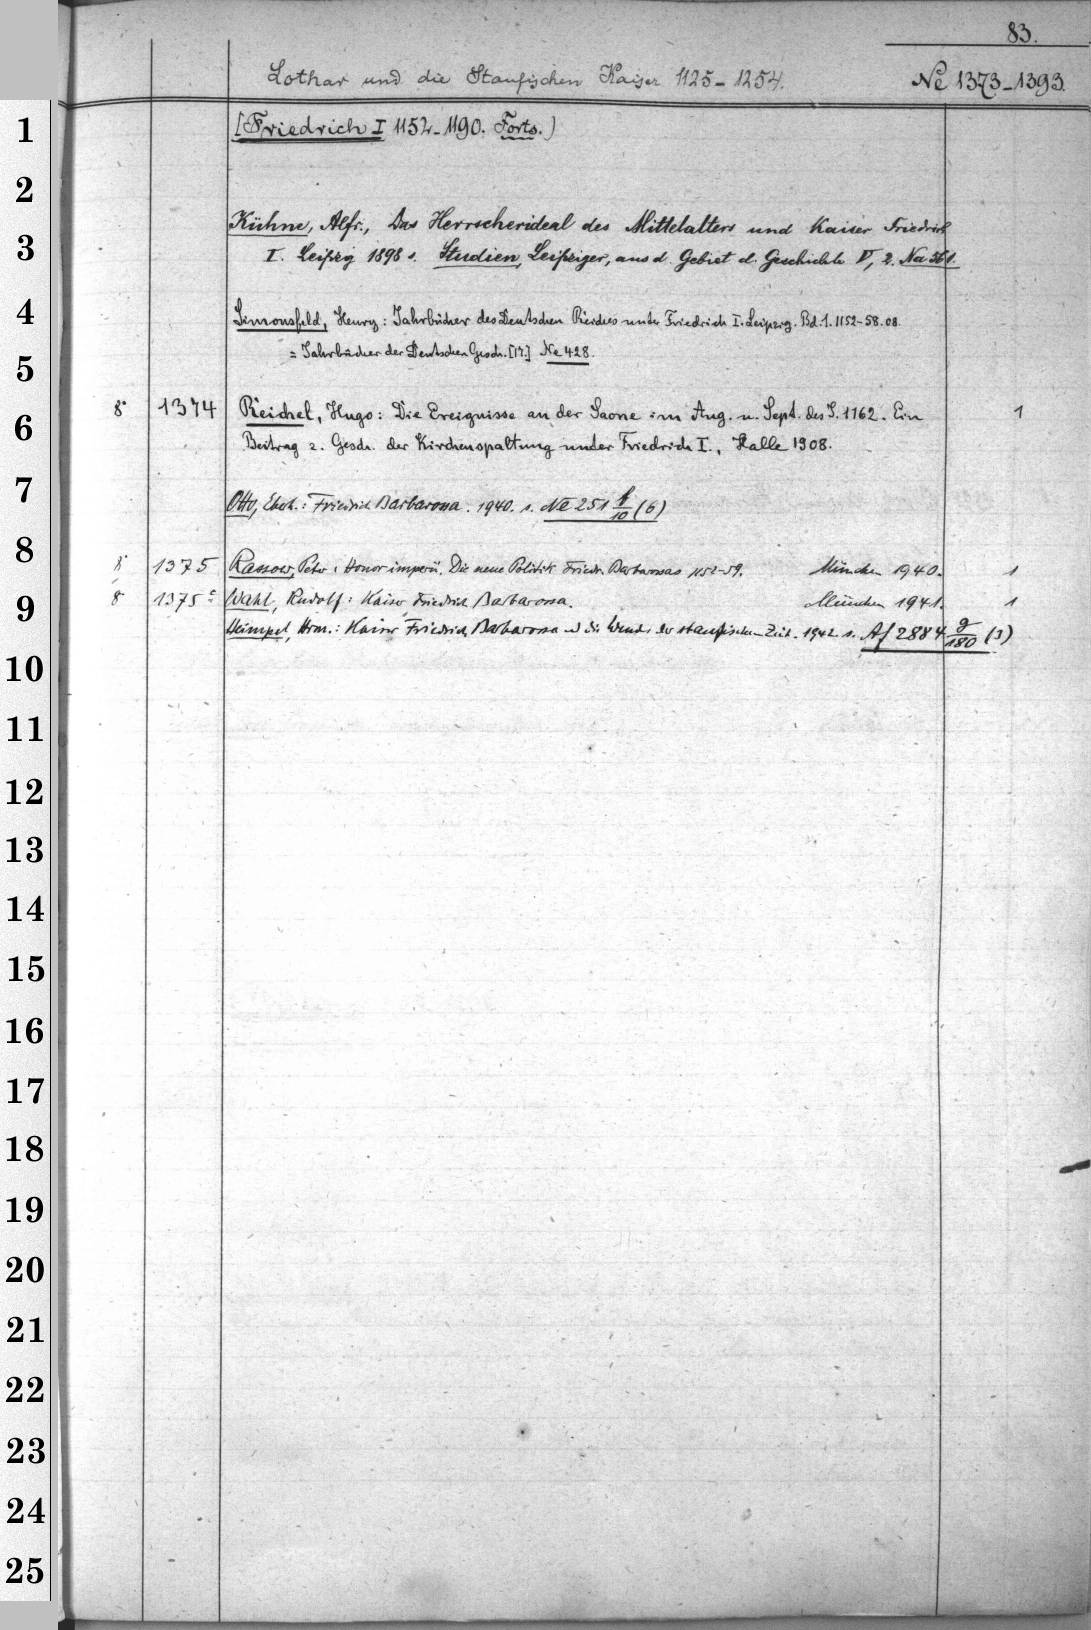 83.
Lothar und die Staufischen Kaiser 1125-1254. Ne 1373-1393.
[Friedrich I 1152-1190. Forts.)
Kühne, Alfr., Das Herrscherideal des Mittelalters und Kaiser Friedrich
I. Leipzig 1898 s. Studien, Leipziger, aus d. Gebiet d. Geschichte V, 2. Na 361.
Simonsfeld, Henry: Jahrbücher des Deutschen Reiches unter Friedrich I. Leipzig. Bd. 1. 1152-58. 08.
= Jahrbücher der Deutschen Gesch. [17.] Ne 428.
8° 1374 Reichel, Hugo: Die Ereignisse an der Saone im Aug. u. Sept. des J. 1162. Ein 1
Beitrag z. Gesch. der Kirchenspaltung unter Friedrich I., Halle 1908.
Otto, Eberh.: Friedrich Barbarossa. 1940. s. Ne 251 f/10 (6)
8° 1375 Rassow, Peter: Honor imperii. Die neue Politik Friedr. Barbarossas 1152-59. München 1940. 1
8° 1375c Wahl, Rudolf: Kaiser Friedrich Barbarossa. München 1941. 1
Heimpel, Hrm.: Kaiser Friedrich Barbarossa u d die Wende der staufischen Zeit. 1942 s. Af 2884 g/180 (3)
1
2
3
4
5
6
7
8
9
10
11
12
13
14
15
16
17
18
19
20
21
22
23
24
25